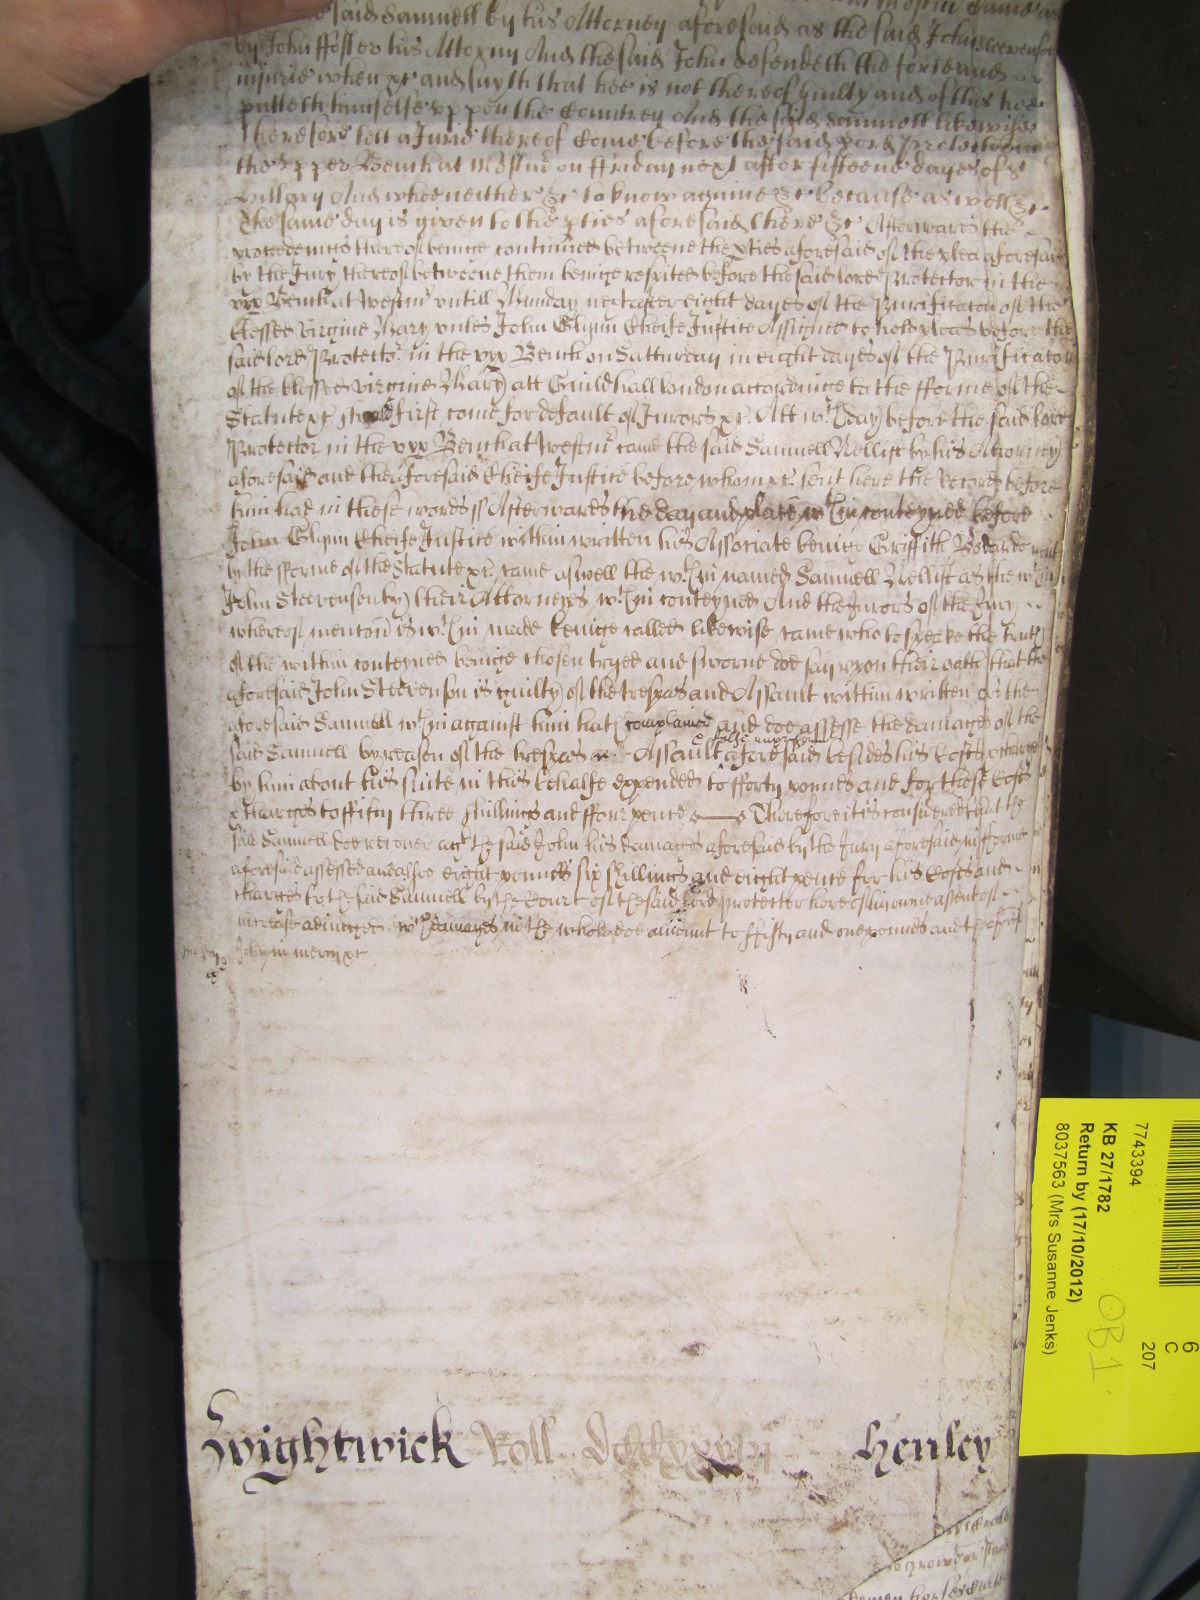 said Samuell by his Attorney aforesaid as the said John Steevenson
by John ffoster his Attorny And the said John defendeth the force and
injurie when &c and sayth that hee is not thereof guilty and of this hee
putteth himselfe vppon the Countrey And the said Samuell likewise
Therefore lett a Jurie thereof Come before the said Lord Protector in
the Vpper Bench at Westmr on ffriday next after fifteene dayes of St
Hillary And who neither &c to know againe &c because as well &c
The same day is given to the pties aforesaid there &c Afterwards the
proceedings thereof beinge continued betweene the pties aforesaid of the plea aforesaid
by the Jury thereof betweene them beinge respited before the said lord Protector in the
vpp Bench at Westmr vntill Munday next after eight dayes of the Purificaton of the
blessed virgine Mary vnles John Glynn Cheife Justice Assigned to hold pleas before the
said lord Protector in the vpp Bench on Satturday in eight dayes of the Purificaton
of the blessed virgine Mary att Guildhall london accordinge to the fforme of the
Statute &c should first come for default of Jurors &c Att wch day before the said lord
Protector in the vpp Bench at Westmr came the said Samuell Rollist by his Attorney
aforesaid and the aforesaid Cheife Justice before whom &c sent here the Record before
him had in these words ss Afterwards the day and place wthin conteyned before
John Glynn Cheife Justice within written his Associate beinge Griffith Bodurde
by the fforme of the Statute &c came aswell the wthin named Samuell Rollist as the wthin
John Steevenson by their Attorneys wthin conteyned And the Jurors of the Jury
whereof mencon is wthin made beinge called likewise came who to speake the truth
of the within conteyned beinge chosen tryed and sworne doe say vpon their oath that the
aforesaid John Steevenson is guilty of the trespas and Assault within written as the
aforesaid Samuell wthin against him hath complained and doe assesse the damages of the
& false imprisonmt
said Samuell by reason of the trespas Assault aforesaid besides his Costs & charges
by him about his suite in this behalfe expended to fforty pounds and for those Costs
& charges to ffifty three shillings and ffour pence Therefore it is considered that the
said Samuell doe recover agt the said John his damages aforesaid by the Jury aforesaid in fforme
aforesaid assessed and alsoe eight pounds six shillings and eight pence for his Costs and
charges to the said Samuell by the Court of the said lord protector here of his owne assent of
increase adiudged wch damages in the whole doe amount to ffifty and one pounds and the aforesd
John in mercy &c
Wightwick Roll Henley
7743394
KB 27/1782
Return by (17/10/2012)
8037563 (Mrs Susanne Jenks)
OB 1
6
C
207